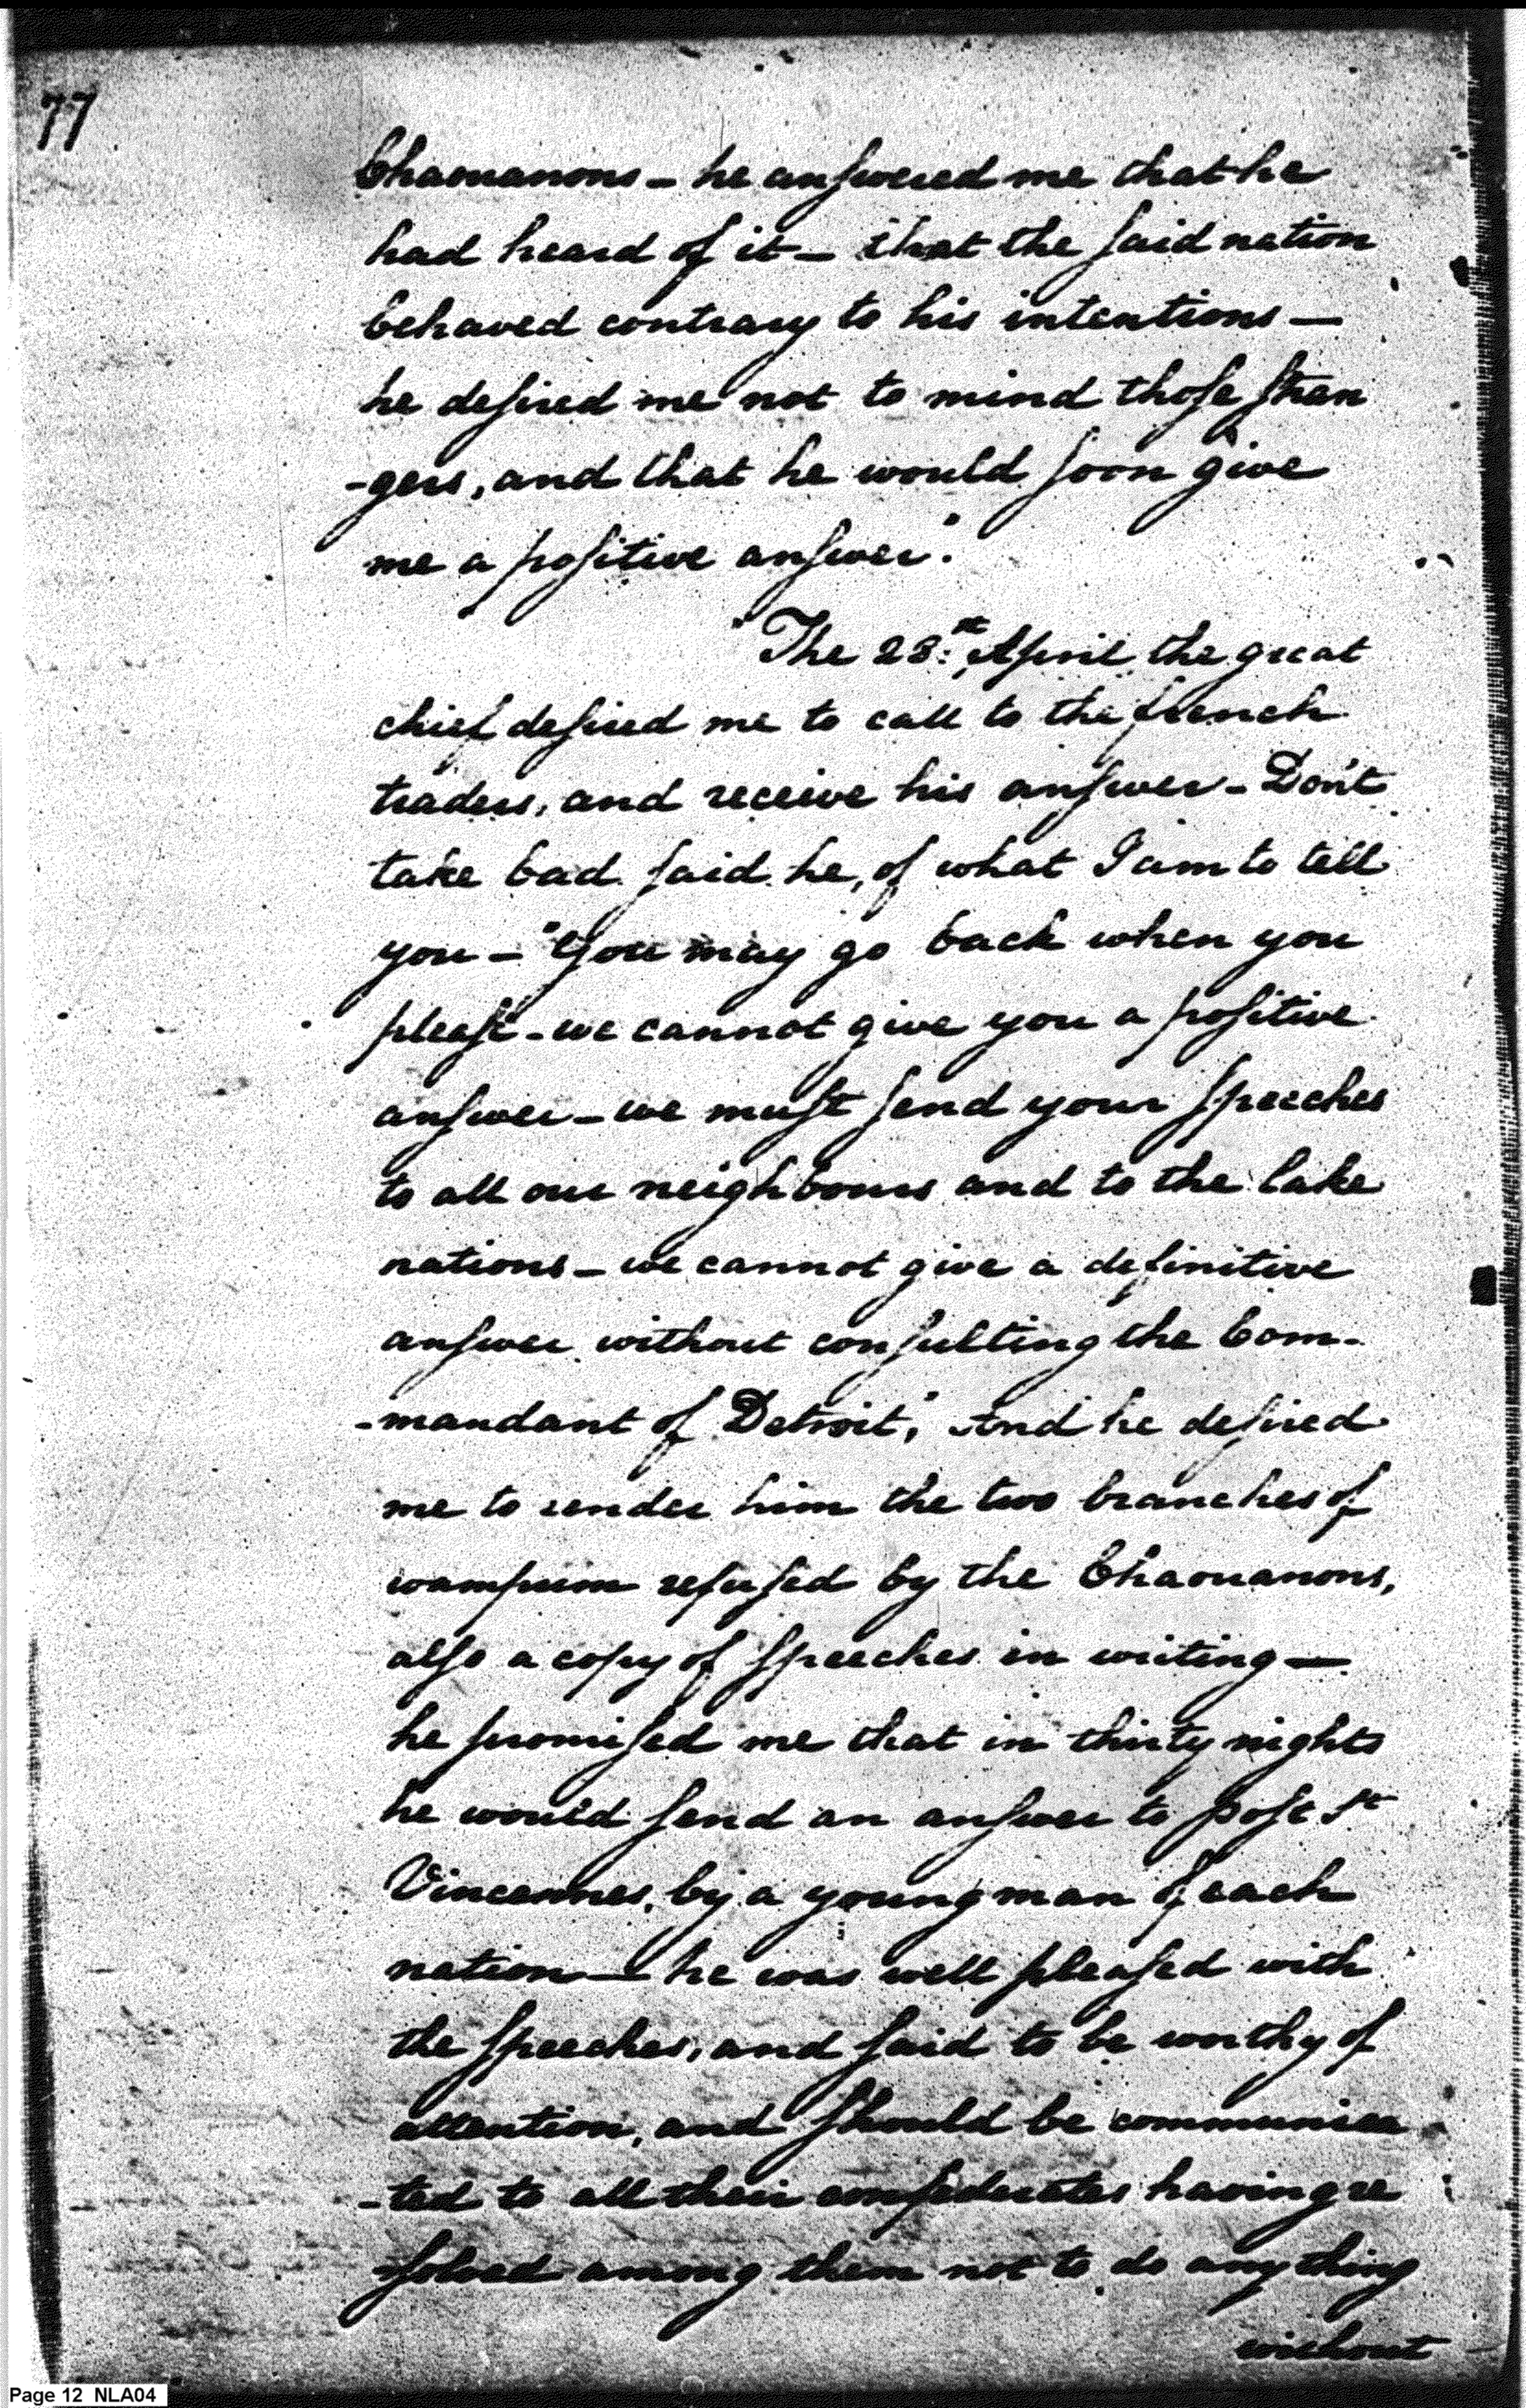 77
Chaouanons - he answered me that he
had heard of it - that the said nation
behaved contrary to his intentions —
he desired me not to mind those stran
-gers, and that he would soon give
me a positive answer."
"The 28:th April the great
chief desired me to call to the french
traders, and receive his answer - Don't
take bad said he, of what I am to tell
you - "You may go back when you
please - we cannot give you a positive
answer - we must send your speeches
to all our neighbours and to the lake
nations - we cannot give a definitive
answer without consulting the Com-
-mandant of Detroit," And he desired
me to render him the two branches of
wampum refused by the Chaouanons,
also a copy of speeches in writing —
he promised me that in thirty nights
he would send an answer to post St
Vincennes, by a young man of each
nation — he was well pleased with
the speeches, and said to be worthy of
attention, and should be communica
-ted to all their confederates having re
-solved among them not to do any thing
without
Page 12 NLA04